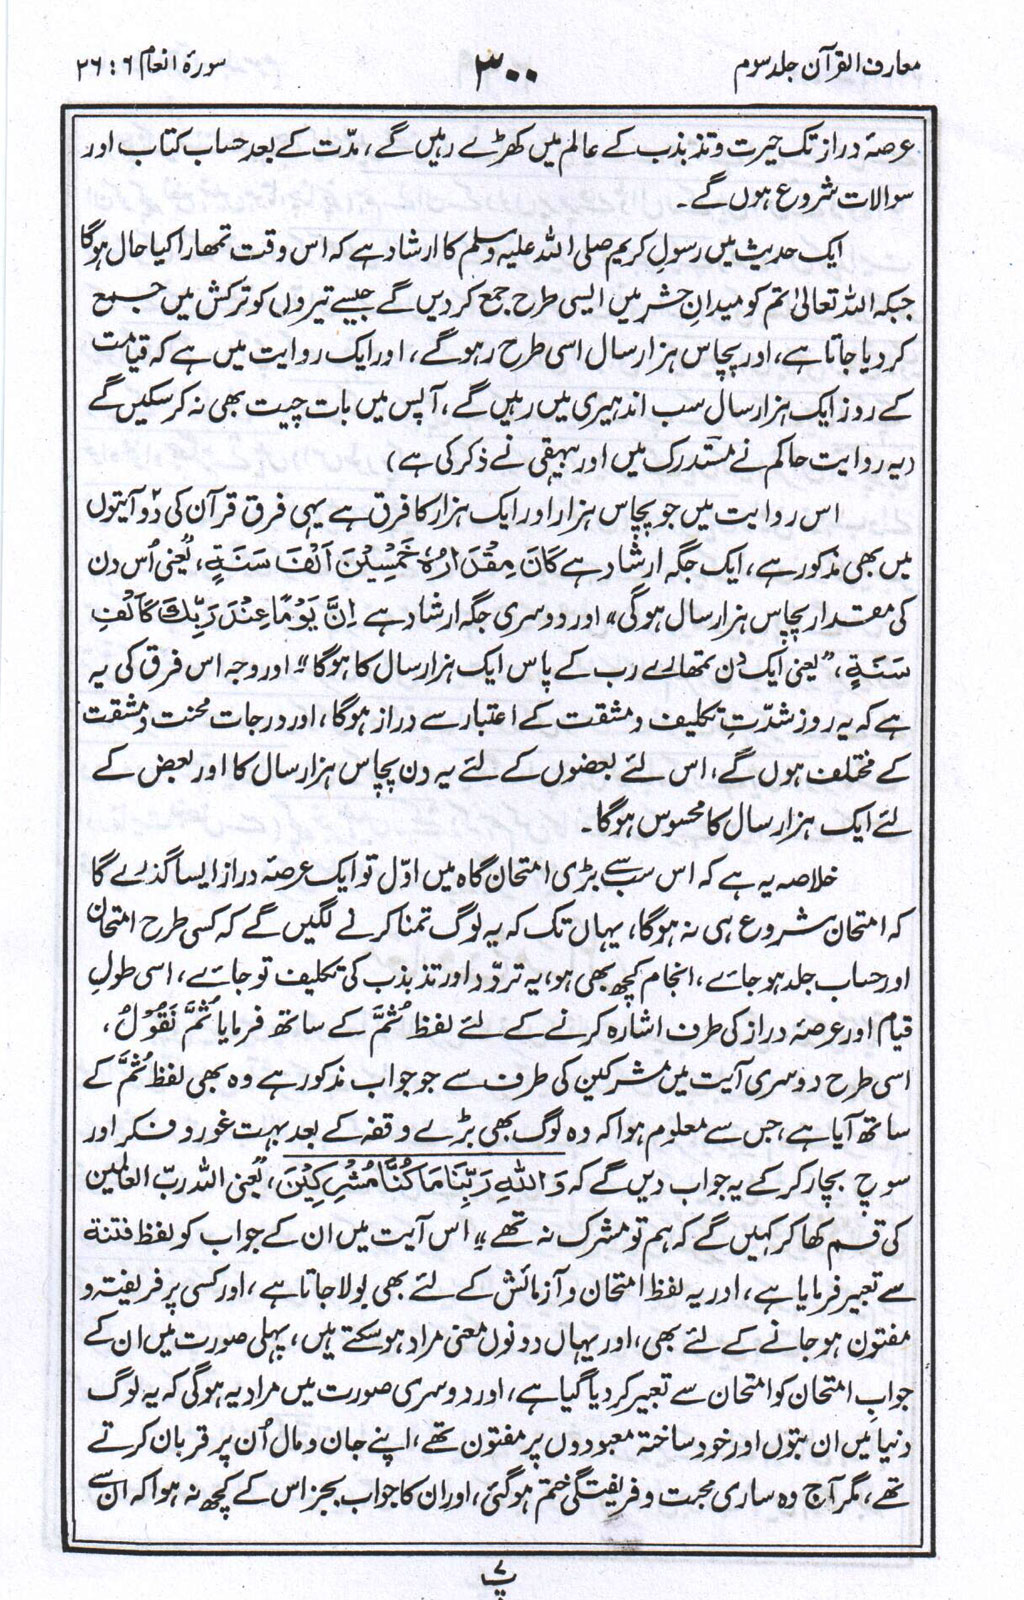 معارف القرآن جلد سوم
۳۰۰
سورۂ انعام ۶ : ۲۶
عرصۂ دراز تک حیرت و تذبذب کے عالم میں کھڑے رہیں گے، مدّت کے بعد حساب کتاب اور
سوالات شروع ہوں گے۔
ایک حدیث میں رسولِ کریم صلی اللہ علیہ وسلم کا ارشاد ہے کہ اس وقت تمھارا کیا حال ہوگا
جبکہ اللہ تعالیٰ تم کو میدانِ حشر میں ایسی طرح جمع کر دیں گے جیسے تیروں کو ترکش میں جمع
کر دیا جاتا ہے، اور پچاس ہزار سال اسی طرح رہوگے، اور ایک روایت میں ہے کہ قیامت
کے روز ایک ہزار سال سب اندھیری میں رہیں گے، آپس میں بات چیت بھی نہ کر سکیں گے
(یہ روایت حاکم نے مستدرک میں اور بیہقی نے ذکر کی ہے)
اس روایت میں جو پچاس ہزار اور ایک ہزار کا فرق ہے یہی فرق قرآن کی دو آیتوں
میں بھی مذکور ہے، ایک جگہ ارشاد ہے كَانَ مِقْدَارُهٗ خَمْسِيْنَ اَلْفَ سَنَةٍ، ”یعنی اُس دن
کی مقدار پچاس ہزار سال ہوگی“ اور دوسری جگہ ارشاد ہے اِنَّ يَوْمًا عِنْدَ رَبِّكَ كَاَلْفِ
سَنَةٍ، ”یعنی ایک دن تمھارے رب کے پاس ایک ہزار سال کا ہوگا“ اور وجہ اس فرق کی یہ
ہے کہ یہ روز شدّتِ تکلیف و مشقت کے اعتبار سے دراز ہوگا، اور درجات محنت و مشقت
کے مختلف ہوں گے، اس لئے بعضوں کے لئے یہ دن پچاس ہزار سال کا اور بعض کے
لئے ایک ہزار سال کا محسوس ہوگا۔
خلاصہ یہ ہے کہ اس سب سے بڑی امتحان گاہ میں اوّل تو ایک عرصۂ دراز ایسا گذرے گا
کہ امتحان شروع ہی نہ ہوگا، یہاں تک کہ یہ لوگ تمنا کرنے لگیں گے کہ کسی طرح امتحان
اور حساب جلد ہو جائے، انجام کچھ بھی ہو، یہ تردّد اور تذبذب کی تکلیف تو جائے، اسی طولِ
قیام اور عرصۂ دراز کی طرف اشارہ کرنے کے لئے لفظ ثُمَّ کے ساتھ فرمایا ثُمَّ نَقُوْلُ،
اسی طرح دوسری آیت میں مشرکین کی طرف سے جو جواب مذکور ہے وہ بھی لفظ ثُمَّ کے
ساتھ آیا ہے، جس سے معلوم ہوا کہ وہ لوگ بھی بڑے وقفہ کے بعد بہت غور و فکر اور
سوچ بچار کر کے یہ جواب دیں گے کہ وَاللّٰهِ رَبِّنَا مَا كُنَّا مُشْرِكِيْنَ، ”یعنی اللہ ربّ العالمین
کی قسم کھا کر کہیں گے کہ ہم تو مشرک نہ تھے“ اس آیت میں ان کے جواب کو لفظ فتنة
سے تعبیر فرمایا ہے، اور یہ لفظ امتحان و آزمائش کے لئے بھی بولا جاتا ہے، اور کسی پر فریفتہ و
مفتون ہو جانے کے لئے بھی، اور یہاں دونوں معنی مراد ہو سکتے ہیں، پہلی صورت میں ان کے
جوابِ امتحان کو امتحان سے تعبیر کر دیا گیا ہے، اور دوسری صورت میں مراد یہ ہوگی کہ یہ لوگ
دنیا میں ان بتوں اور خود ساختہ معبودوں پر مفتون تھے، اپنے جان و مال اُن پر قربان کرتے
تھے، مگر آج وہ ساری محبت و فریفتگی ختم ہو گئی، اور ان کا جواب بجز اس کے کچھ نہ ہوا کہ ان سے